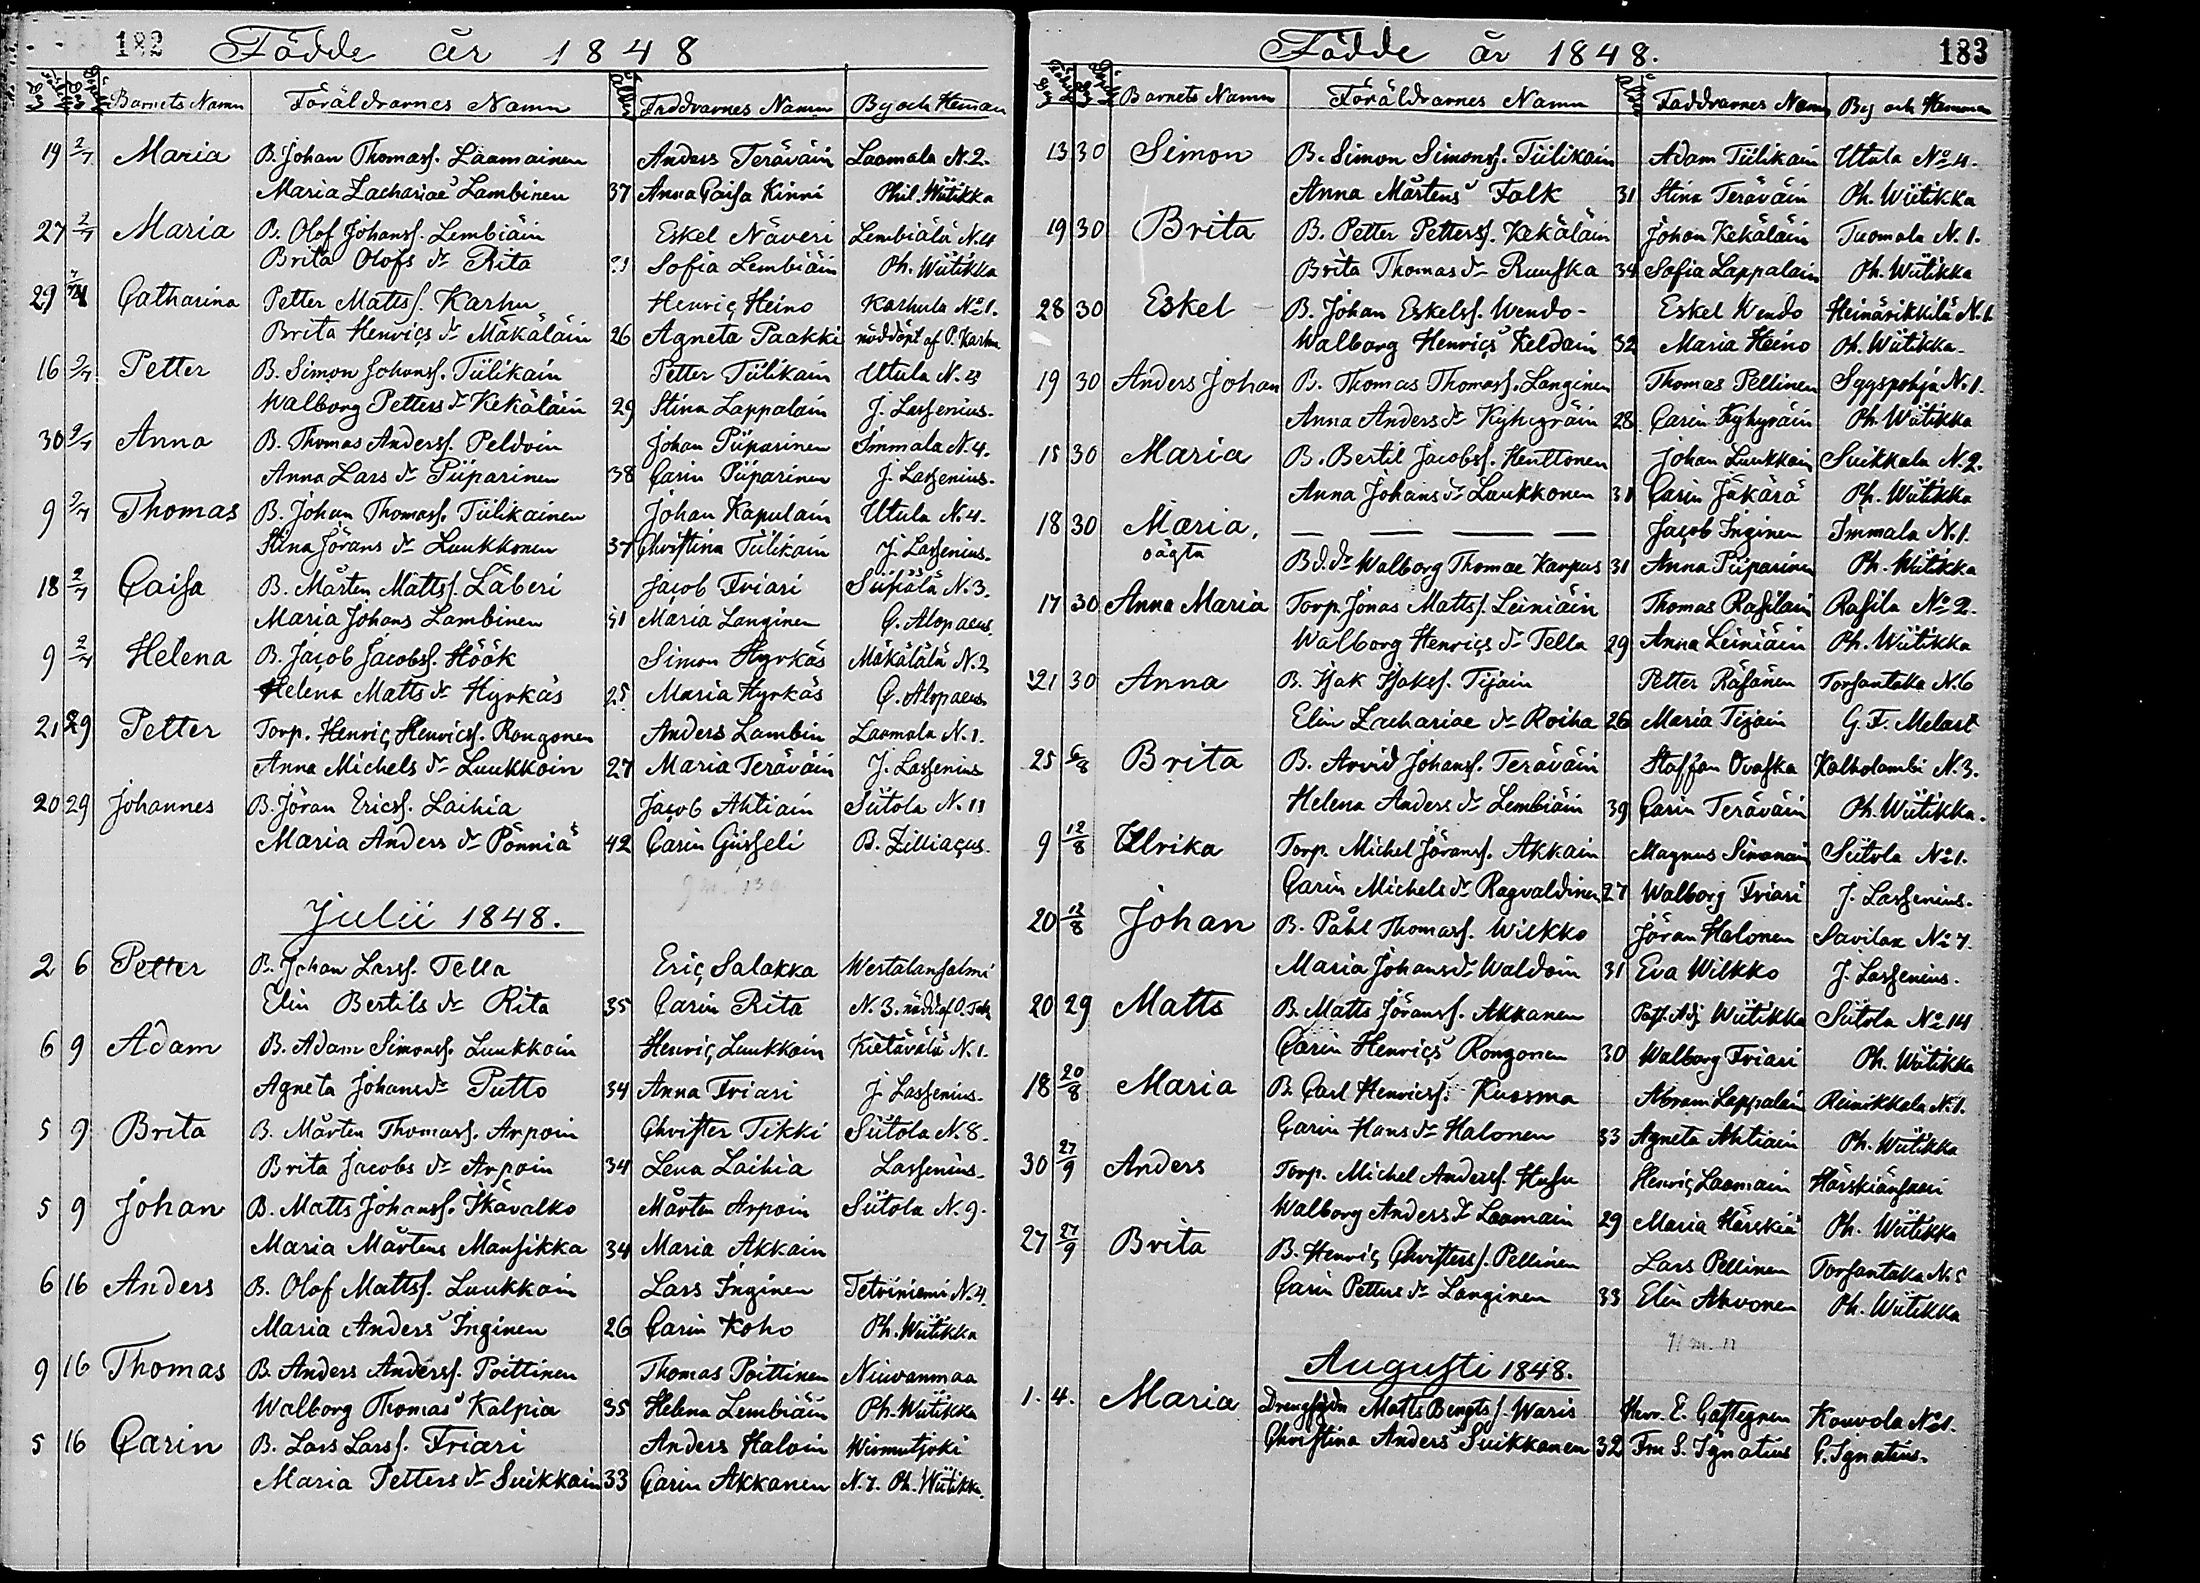 182 Födde år 1848
Barnets Namn Föräldrarnes Namn Ålder Faddrarnes Namn By och Hemman
19 2/7 Maria B. Johan Thomass. Laamainen Anders Teräväin Laamala N. 2.
Maria Zachariae Lambinen 37 Anna Caisa Kinni Phil. Wiitikka
27 2/7 Maria B. Olof Johanss. Lembiäin Eskel Näveri Lembiälä N. 4
Brita Olofs dr Rita Sofia Lembiäin Ph. Wiitikka
29 Catharina Petter Matts s. Karhu Henric Heino Karhula No 1.
Brita Henrics dr Mäkäläin 26 Agneta Paakki nöddöpt af P. Karhu
16 2/7 Petter B. Simon Johanss. Tiilikain Petter Tiilikain Utula N. 4
Walborg Petters dr Kekäläin 29 Stina Lappalain J. Lassenius.
30 2/7 Anna B. Thomas Anderss. Peldoin Johan Piiparinen Immala N. 4.
Anna Lars dr Piiparinen 38 Carin Piiparinen J. Lassenius.
9 2/7 Thomas B. Johan Thomass. Tiilikainen Johan Kapulain Utula N. 4.
Stina Jörans dr Luukkonen 37 Christina Tiilikain J. Lassenius.
18 2/7 Caisa B. Mårten Mattss. Läberi Jacob Friari Siipiälä N. 3.
Maria Johans Lambinen Maria Langinen C. Alopaeus.
9 2/7 Helena B. Jacob Jacobss. Höök Simon Hyrkäs Mäkälälä N. 2
Helena Matts dr Hyrkäs 25 Maria Hyrkäs C. Alopaeus
21 29 Petter Torp. Henric Henricss. Rongonen Anders Lambin Laamala N. 1.
Anna Michels dr Luukkoin 27 Maria Teräväin J. Lassenius
20 29 Johannes B. Jöran Ericss. Laihia Jacob Ahtiain Siitola N. 11
Maria Anders dr Pönniä 42 Carin Giisseli B. Zilliacus.
Julii 1848.
2 6 Petter B. Johan Larss. Tella Eric Salakka Wertalansalmi
Elin Bertils dr Rita 35 Carin Rita N. 3. nödd. af O.
6 9 Adam B. Adam Simonss. Luukkoin Henric Luukkain Kietävälä N. 1.
Agneta Johans dr Putto 34 Anna Friari J. Lassenius.
5 9 Brita B. Mårten Thomass. Arpoin Christer Tikki Siitola N. 8.
Brita Jacobs dr Arpoin 34 Lena Laihia Lassenius.
5 9 Johan B. Matts Johanss. Ikävalko Mårten Arpoin Siitola N. 9.
Maria Mårtens Mansikka 34 Maria Akkain
6 16 Anders B. Olof Mattss. Luukkain Lars Inginen Tetriniemi N. 4.
Maria Anders Inginen 26 Carin Koho Ph. Wiitikka
9 16 Thomas B. Anders Anderss. Poittinen Thomas Poittinen Niuvanmaa
Walborg Thomas Kalpia 35 Helena Lembiäin Ph. Wiitikka
5 16 Carin B. Lars Larss. Friari Anders Haloin Wirmutjoki
Maria Petters dr Suikkain 33 Carin Akkanen N. 7. Ph. Wiitikka.
Födde år 1848. 183
Barnets Namn Föräldrarnes Namn Ålder Faddrarnes Namn By och Hemman
13 30 Simon B. Simon Simonss. Tiilikain Adam Tiilikain Utula No 4.
Anna Mårtens Falk 31 Stina Teräväin Ph. Wiitikka
19 30 Brita B. Petter Petterss. Kekäläin Johan Kekäläin Tuomala N. 1.
Brita Thomas dr Ruuska 34 Sofia Lappalain Ph. Wiitikka
28 30 Eskel B. Johan Eskelss. Wendo Eskel Wendo Heinärikkilä N. 1.
Walborg Henrics Keldain 32 Maria Heino Ph. Wiitikka.
19 30 Anders Johan B. Thomas Thomass. Langinen Thomas Pellinen Syyspohja N. 1.
Anna Anders dr Kyhyräin 28 Carin Kyhyräin Ph. Wiitikka
15 30 Maria B. Bertil Jacobss. Henttonen Johan Luukkain Suikkala N. 2.
Anna Johans dr Luukkonen 31 Carin Jäkärä Ph. Wiitikka
18 30 Maria, — — — — Jacob Inginen Immala N. 1.
oägta B. d. dr Walborg Thomae Karpus 31 Anna Piiparinen Ph. Wiitikka
17 30 Anna Maria Torp. Jonas Mattss. Leiniäin Thomas Rasilain Rasila No 2.
Walborg Henrics dr Tella 29 Anna Leiniäin Ph. Wiitikka
21 30 Anna B. Isak Isakss. Tijain Petter Räsänen Torsantaka N. 6
Elin Zachariae dr Roiha 26 Maria Tijain G. F. Melart
25 6/8 Brita B. Arvid Johanss. Teräväin Staffan Ovaska Kalholambi N. 3.
Helena Anders dr Lembiäin 39 Carin Teräväin Ph. Wiitikka.
9 12/8 Ulrika Torp. Michel Jöranss. Akkain Magnus Simonain Siitola No 1.
Carin Michels dr Ragvaldinen 27 Walborg Friari J. Lassenius.
20 12/8 Johan B. Påhl Thomass. Wilkko Jöran Halonen Savilax No 7.
Maria Johans dr Waldoin 31 Eva Wilkko J. Lassenius.
20 29 Matts B. Matts Jöranss. Akkanen Past. Adj. Wiitikka Siitola No 14
Carin Henrics Rongonen 30 Walborg Friari Ph. Wiitikka
18 20/8 Maria B. Carl Henricss. Kuosma Abram Lappalain Reinikkala N. 1.
Carin Hans dr Halonen 33 Agneta Ahtiain Ph. Wiitikka
30 27/9 Anders Torp. Michel Anderss. Husu Henric Laamain Härskiänsaari
Walborg Anders dr Laamain 29 Maria Härskiä Ph. Wiitikka
27 27/9 Brita B. Henric Christerss. Pellinen Lars Pellinen Torsantaka N. 5
Carin Petters dr Langinen 33 Elin Ahvonen Ph. Wiitikka
Augusti 1848.
1. 4. Maria Matts Bengts s. Waris Herr. E. Gastegren Kouvola No 1.
Christina Anders Suikkanen 32 Fru S. Ignatius G. Ignatius.